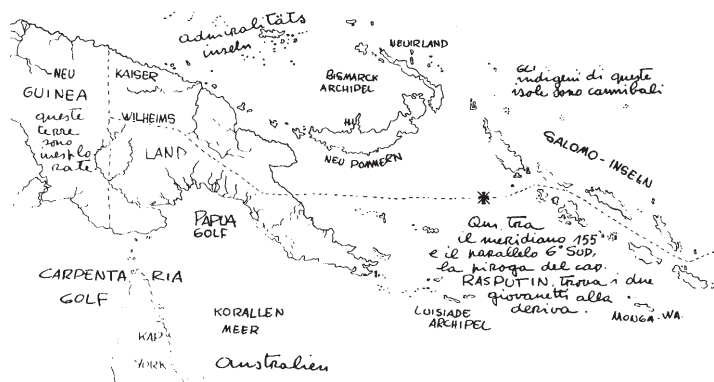 admiralitäts
inseln
NEUIRLAND
BISMARCK
ARCHIPEL
NEU POMMERN
Gli
indigeni di queste
isole sono cannibali
SALOMO-INSELN
NEU
GUINEA
queste
terre
sono
inesplo
rate
KAISER
WILHEIMS
LAND
PAPUA
GOLF
Qui tra
il meridiano 155°
e il parallelo 6° SUD,
la piroga del cap.
RASPUTIN, trova i due
giovanetti alla
deriva.
CARPENTARIA
GOLF
KORALLEN
MEER
LUISIADE
ARCHIPEL
MONGA-WA.
KAP
YORK
Australien